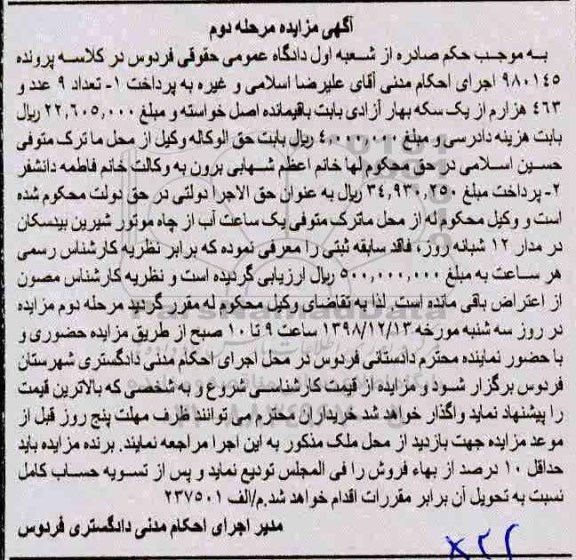 آگهی مزایده مرحله دوم
به موجب حکم صادره از شعبه اول دادگاه عمومی حقوقی فردوس در کلاسه پرونده
۹۸۰۱۴۵ اجرای احکام مدنی آقای علیرضا اسلامی و غیره به پرداخت ۱- تعداد ۹ عدد و
۴۶۳ هزارم از یک سکه بهار آزادی بابت باقیمانده اصل خواسته و مبلغ ۲۲,۶۰۵,۰۰۰ ریال
بابت هزینه دادرسی و مبلغ ۴,۰۰۰,۰۰۰ ریال بابت حق الوکاله وکیل از محل ما ترک متوفی
حسین اسلامی در حق محکوم لها خانم اعظم شهابی برون به وکالت خانم فاطمه دانشفر
۲- پرداخت مبلغ ۳۴,۹۳۰,۲۵۰ ریال به عنوان حق الاجرا دولتی در حق دولت محکوم شده
است و وکیل محکوم له از محل ماترک متوفی یک ساعت آب از چاه موتور شیرین بیدسکان
در مدار ۱۲ شبانه روز، فاقد سابقه ثبتی را معرفی نموده که برابر نظریه کارشناس رسمی
هر ساعت به مبلغ ۵۰۰,۰۰۰,۰۰۰ ریال ارزیابی گردیده است و نظریه کارشناس مصون
از اعتراض باقی مانده است. لذا به تقاضای وکیل محکوم له مقرر گردید مرحله دوم مزایده
در روز سه شنبه مورخه ۱۳۹۸/۱۲/۱۳ ساعت ۹ تا ۱۰ صبح از طریق مزایده حضوری و
با حضور نماینده محترم دادستانی فردوس در محل اجرای احکام مدنی دادگستری شهرستان
فردوس برگزار شود و مزایده از قیمت کارشناسی شروع و به شخصی که بالاترین قیمت
را پیشنهاد نماید واگذار خواهد شد خریداران محترم می توانند ظرف مهلت پنج روز قبل از
موعد مزایده جهت بازدید از محل ملک مذکور به این اجرا مراجعه نمایند. برنده مزایده باید
حداقل ۱۰ درصد از بهاء فروش را فی المجلس تودیع نماید و پس از تسویه حساب کامل
نسبت به تحویل آن برابر مقررات اقدام خواهد شد.م/الف ۲۳۷۵۰۱
مدیر اجرای احکام مدنی دادگستری فردوس